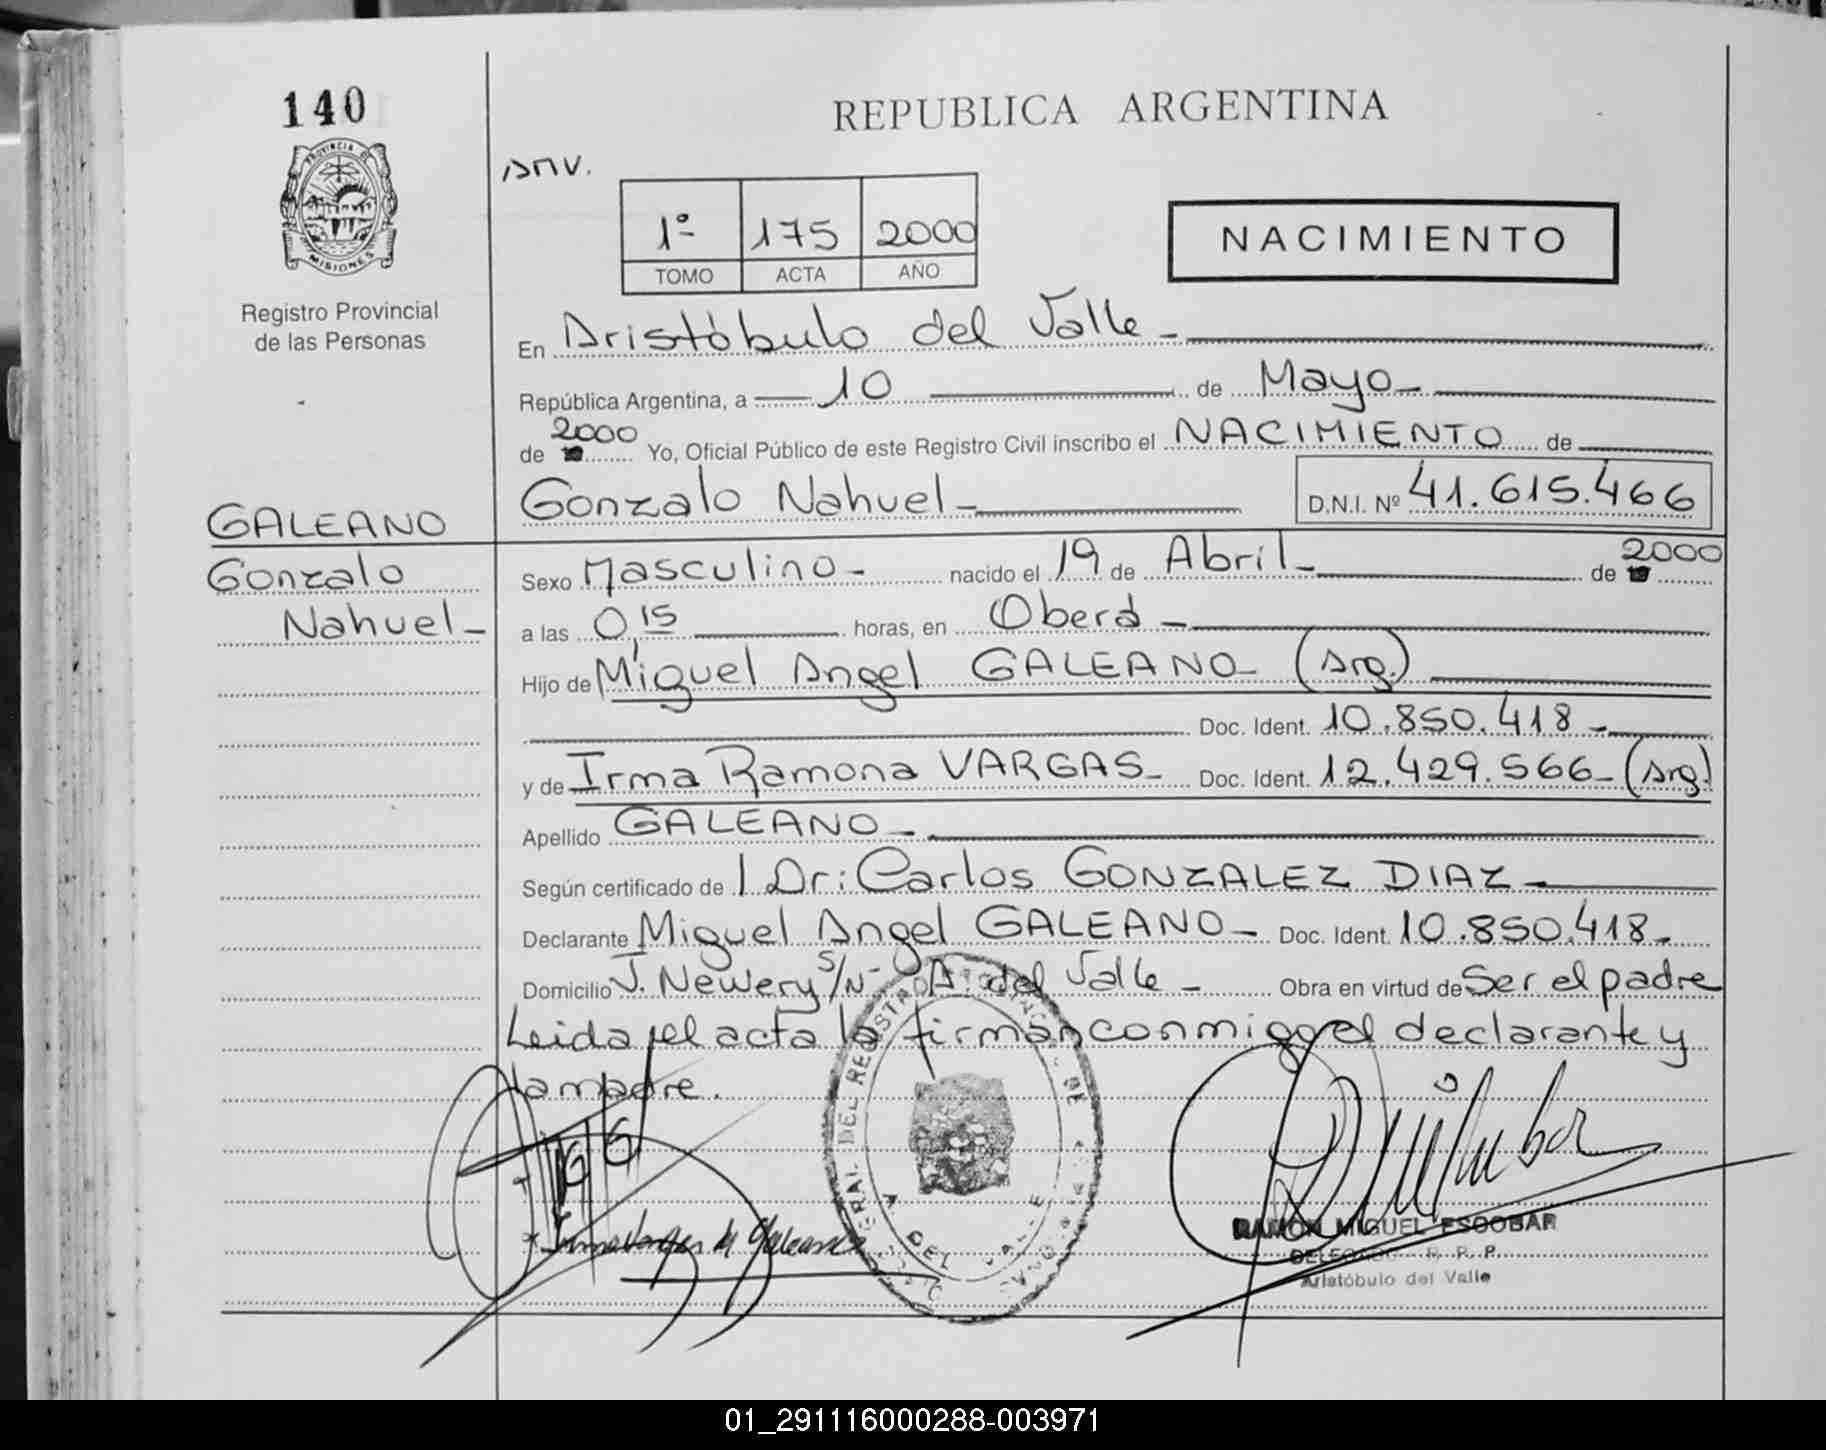 140
PROVINCIA DE
MISIONES
Registro Provincial
de las Personas
REPUBLICA ARGENTINA
1º 175 2000
TOMO ACTA AÑO
NACIMIENTO
En Aristóbulo del Valle
República Argentina, a 10 de Mayo
de 2000 Yo, Oficial Público de este Registro Civil inscribo el NACIMIENTO de
Gonzalo Nahuel D.N.I. Nº 41.615.466
GALEANO
Gonzalo
Nahuel
Sexo Masculino nacido el 19 de Abril de 2000
a las 0,15 horas, en Oberá
Hijo de Miguel Angel GALEANO (Arg.)
Doc. Ident. 10.850.418
y de Irma Ramona VARGAS Doc. Ident. 12.429.566 (Arg.)
Apellido GALEANO
Según certificado de Dr: Carlos GONZALEZ DIAZ
Declarante Miguel Angel GALEANO Doc. Ident. 10.850.418
Domicilio J. Newery S/Nº A. del Valle Obra en virtud de Ser el padre
Leida el acta la firman conmigo el declarante y
la madre.
RAMON MIGUEL ESCOBAR
DELEGADO R. P. P.
Aristóbulo del Valle
01_291116000288-003971